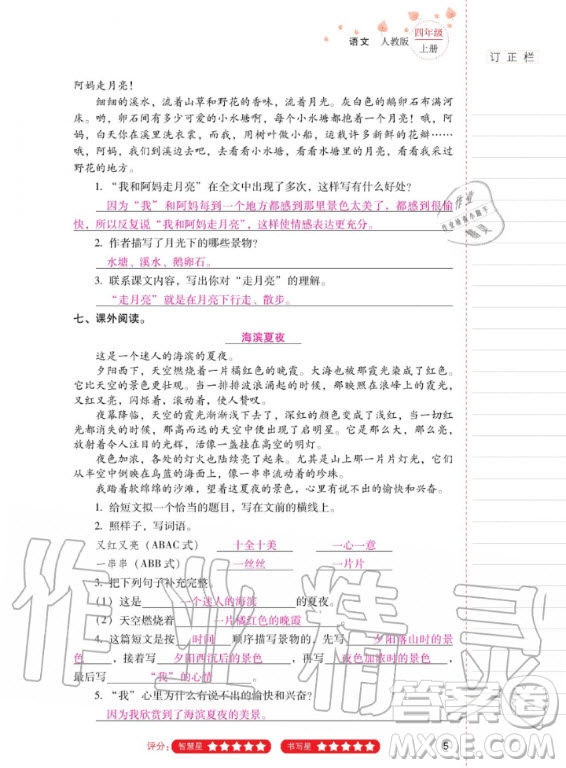 语文 人教版 四年级上册
订正栏
阿妈走月亮！
细细的溪水，流着山草和野花的香味，流着月光。灰白色的鹅卵石布满河
床。哟，卵石间有多少可爱的小水塘啊，每个小水塘都抱着一个月亮！哦，阿
妈，白天你在溪里洗衣裳，而我，用树叶做小船，运载许多新鲜的花瓣……
哦，阿妈，我们到溪边去吧，去看看小水塘，看看水塘里的月亮，看看我采过
野花的地方。
1. “我和阿妈走月亮”在全文中出现了多次，这样写有什么好处？
因为“我”和阿妈每到一个地方都感到那里景色太美了，都感到很愉
快，所以反复说“我和阿妈走月亮”，这样使情感表达更充分。
2. 作者描写了月光下的哪些景物？
水塘、溪水、鹅卵石。
3. 联系课文内容，写出你对“走月亮”的理解。
“走月亮”就是在月亮下行走、散步。
七、课外阅读。
海滨夏夜
这是一个迷人的海滨的夏夜。
夕阳西下，天空燃烧着一片橘红色的晚霞。大海也被染成了红色的。
它比天空的景色更壮观。当一排排波浪涌起的时候，那映照在浪峰上的霞光，
又红又亮，闪烁着，滚动着。
夜幕降临，天空的霞光渐渐淡下去了，深红的颜色变成了浅红，当一切红
光都消失的时候，那高而远的天空中出现了最早的启明星。它是那么大，那么亮，
放射着令人注目的光辉，活像一盏挂在高空的明灯。
夜色加浓，各处的灯火也陆续亮了起来。尤其是那一片片灯光，它们
从半空中倒映在乌蓝的海面上，像一串串流动着的珍珠。
我踏着软绵绵的沙滩，望着这夏夜的景色，心里有说不出的愉快和兴奋。
1. 给短文拟一个恰当的题目，写在文前的横线上。
2. 照样子，写词语。
又红又亮（ABAC 式） 十全十美 一心一意
一串串（ABB 式） 一丝丝 一片片
3. 把下列句子补充完整。
（1）这是 一个迷人的海滨 的夏夜。
（2）天空燃烧着 一片橘红色的晚霞 。
4. 这篇短文是按 时间 顺序描写景物的，先写 夕阳落山时的景
色 ，接着写 夕阳西沉后的景色 ，再写 夜色加浓时的景色 ，
最后写 “我”的心情 。
5. “我”心里为什么有说不出的愉快和兴奋？
因为我欣赏到了海滨夏夜的美景。
评分： 智慧星 ★★★★★ 书写星 ★★★★★
5
作业精灵
答案圈
MXQE.COM